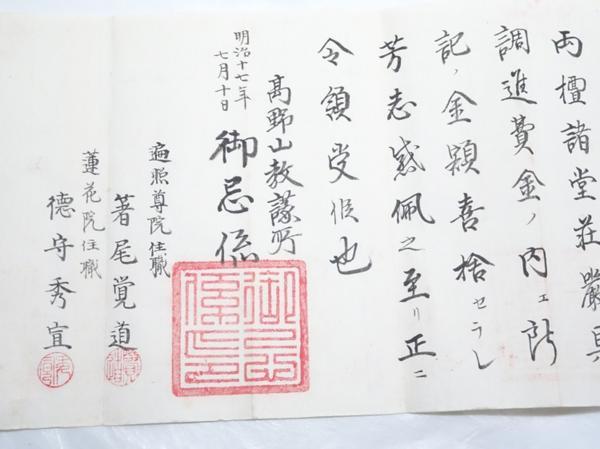 両壇諸堂荘厳具
調進費金ノ内エ前
記ノ金額喜捨セラレ
芳志感佩之至リ正ニ
令領受候也
明治十七年
七月十日
高野山教議所
御忌係
遍照尊院住職
著尾覚道
蓮花院住職
徳守秀宜